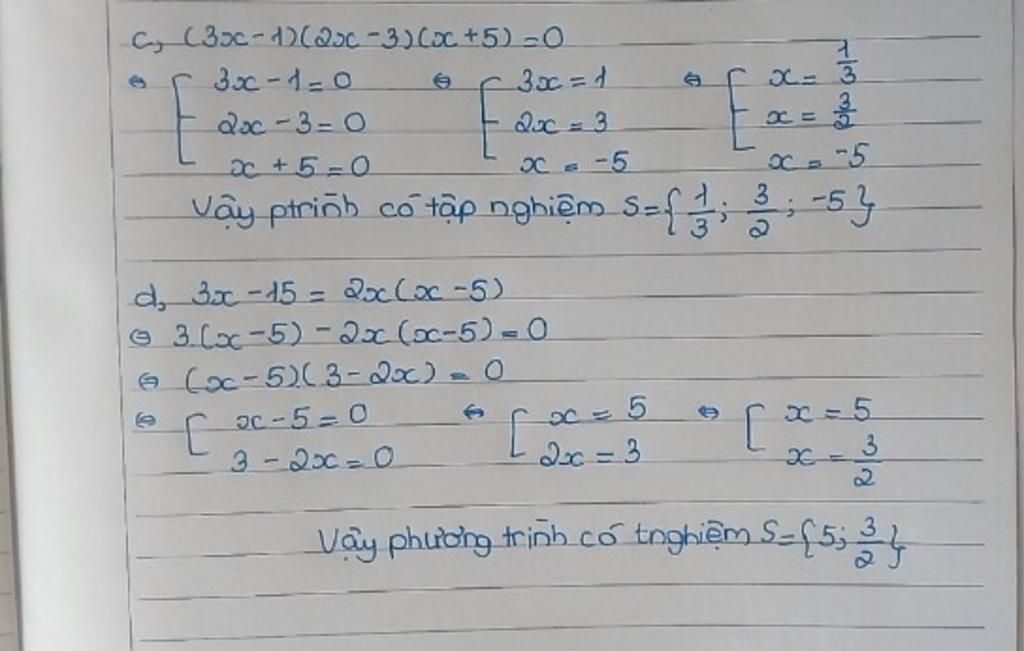 c, (3x-1)(2x-3)(x+5)=0
⇔ [ 3x-1=0 ⇔ [ 3x=1 ⇔ [ x=1/3
2x-3=0 2x=3 x=3/2
x+5=0 x=-5 x=-5
Vậy ptrình có tập nghiệm S={1/3; 3/2; -5}
d, 3x-15=2x(x-5)
⇔ 3.(x-5)-2x(x-5)=0
⇔ (x-5).(3-2x)=0
⇔ [ x-5=0 ⇔ [ x=5 ⇔ [ x=5
3-2x=0 2x=3 x=3/2
Vậy phương trình có tnghiệm S={5; 3/2}